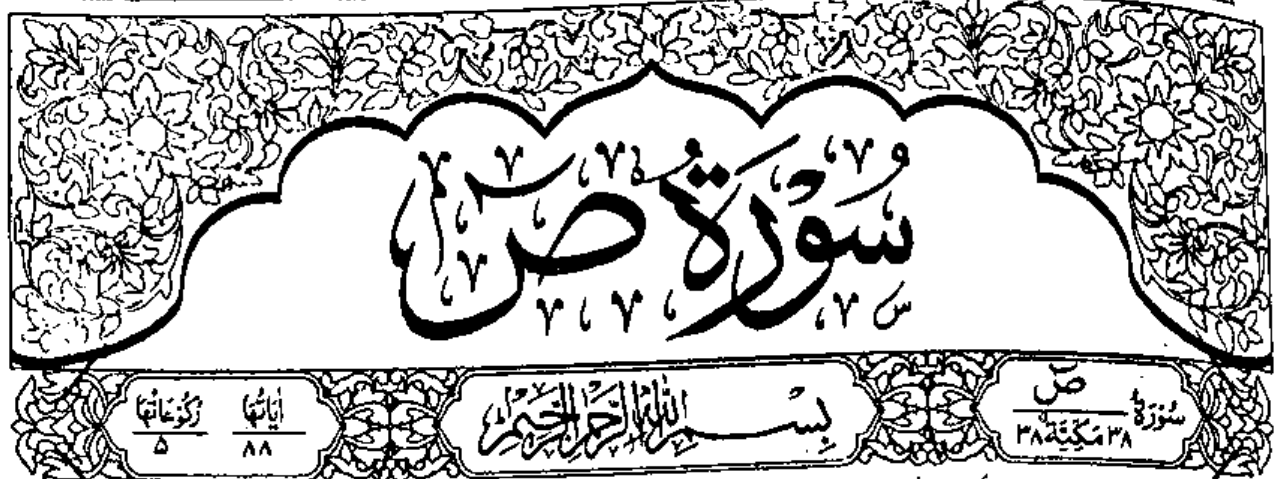 سُوْرَةُ صٓ
سُوْرَةُ صٓ ٣٨ مَكِّيَّة ٣٨
بِسْمِ اللهِ الرَّحْمٰنِ الرَّحِيْمِ
اٰيَاتُهَا ٨٨
رُكُوْعَاتُهَا ٥